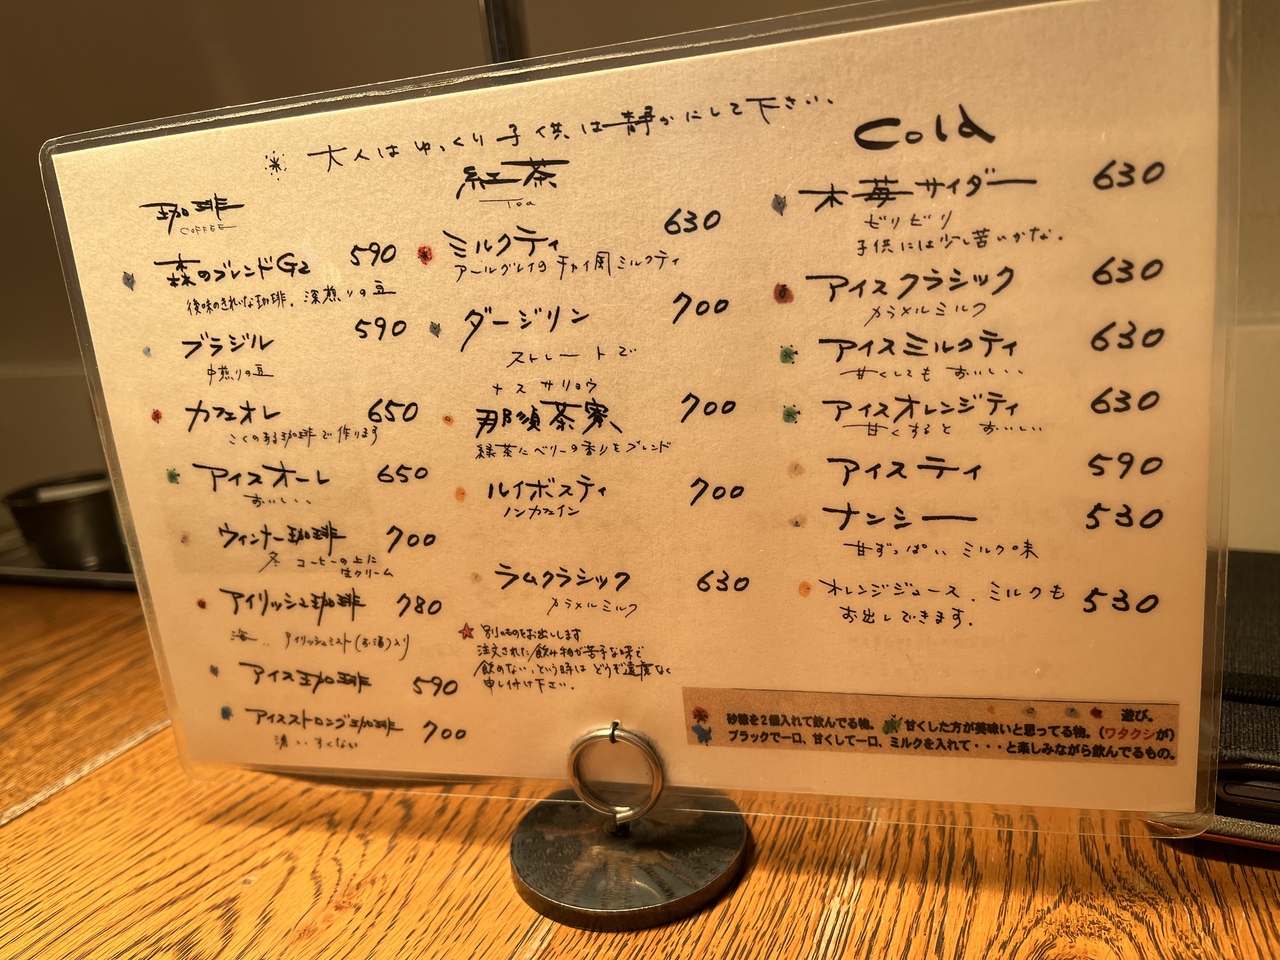 大人はゆっくり子供は静かにして下さい。
珈琲
COFFEE
森のブレンドG2 590
後味のきれいな珈琲。深煎りの豆
ブラジル 590
中煎りの豆
カフェオレ 650
こくのある珈琲で作ります
アイスオーレ 650
おいしい、
ウィンナー珈琲 700
冬 コーヒーの上に
生クリーム
アイリッシュ珈琲 780
アイリッシュミスト(お酒)入り
アイス珈琲 590
アイスストロング珈琲 700
濃い すくない
紅茶
Tea
ミルクティ 630
アールグレイの チャイ風ミルクティ
ダージリン 700
ストレートで
ナス サリョウ
那須茶寮 700
緑茶にベリーの香りをブレンド
ルイボスティ 700
ノンカフェイン
ラムクラシック 630
カラメルミルク
別のものをお出しします
注文された飲み物が苦手な味で
飲めない、という時は どうぞ遠慮なく
申し付け下さい。
Cold
木苺サイダー 630
ビリビリ
子供には少し苦いかな。
アイスクラシック 630
カラメルミルク
アイスミルクティ 630
甘くしても おいしい、
アイスオレンジティ 630
甘くすると おいしい
アイスティ 590
ナンシー 530
甘ずっぱい ミルク味
オレンジジュース、ミルクも 530
お出しできます。
砂糖を2個入れて飲んでる物。 甘くした方が美味いと思ってる物。(ワタクシが) 遊び。
ブラックで一口、甘くして一口、ミルクを入れて・・・と楽しみながら飲んでるもの。